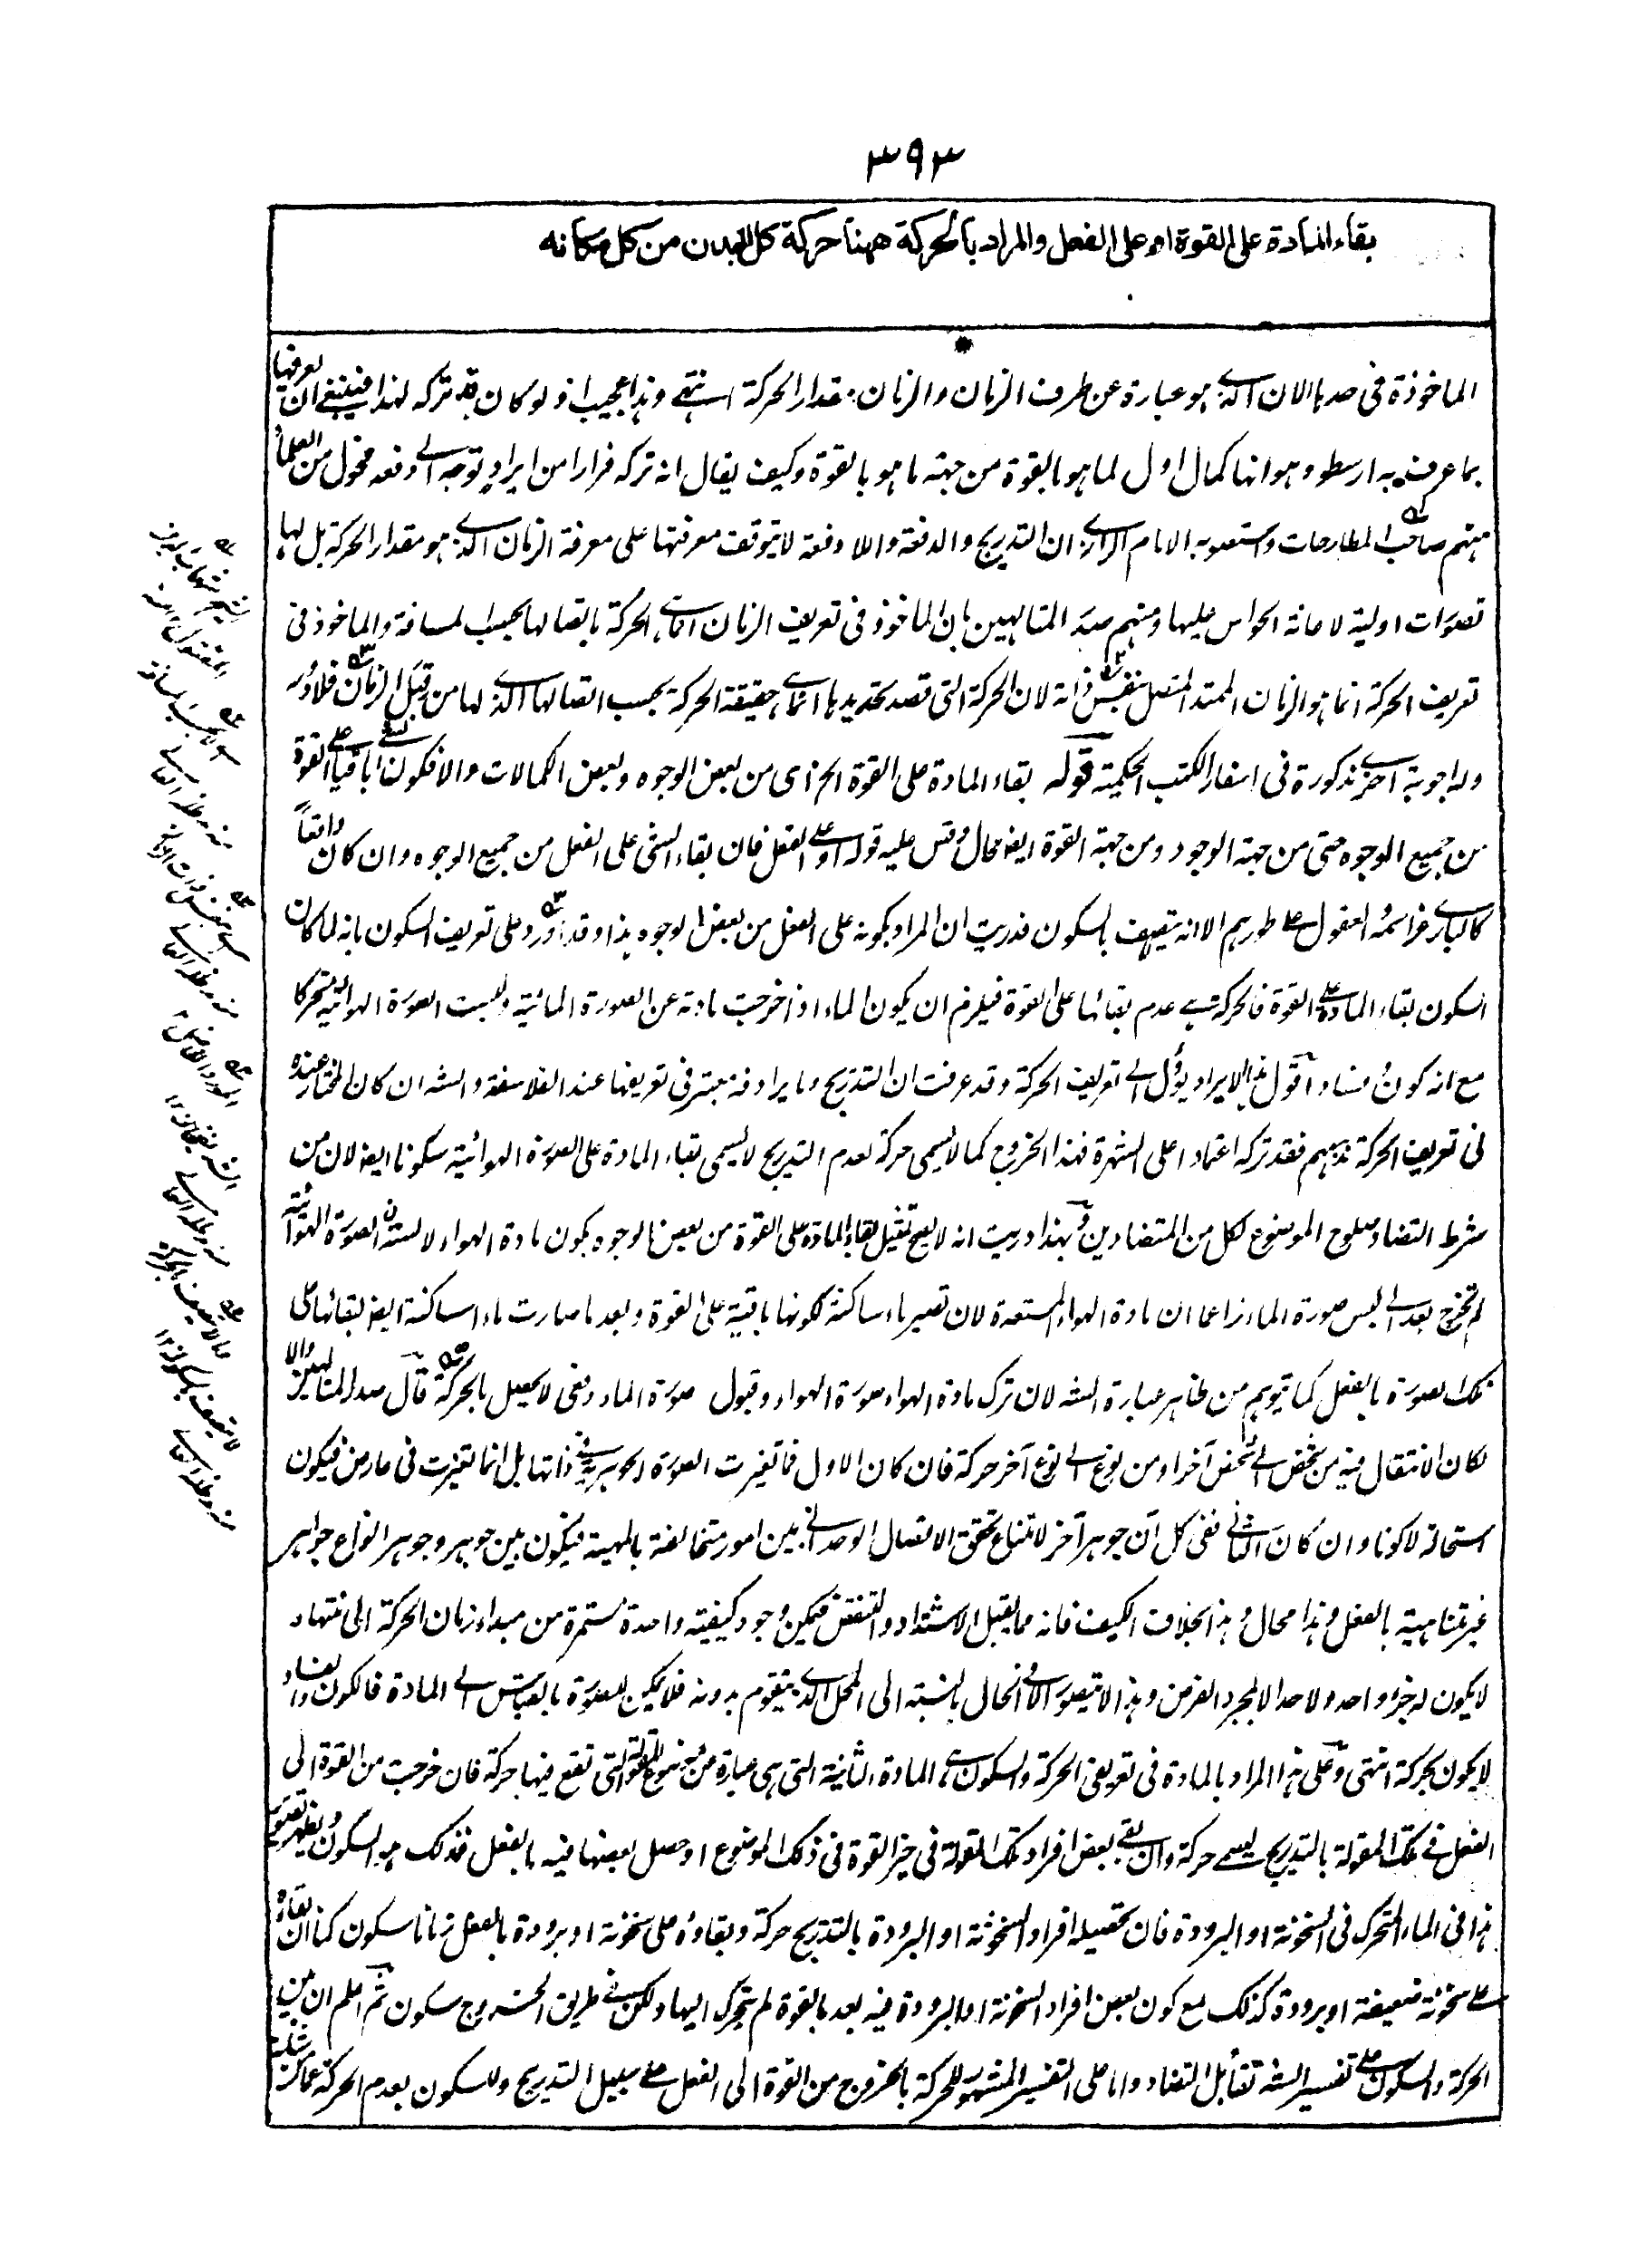 ٣٩٣
بقاء المادة على القوة او على الفعل والمراد بالحركة ههنا حركة كل البدن من كل مكانه
الماخوذة فى حدها الآن الذى هو عبارة عن طرف الزمان والزمان مقدار الحركة انتهى وهذا عجيب اذ لو كان قد تركه لهذا فينبغى ان يعرفها
بما عرف به ارسطو وهو انها كمال اول لما هو بالقوة من جهة ما هو بالقوة وكيف يقال انه تركه فرارا من ايراد توجه الى دفعه فحول من العلماء
منهم صاحب المطارحات واستصوبه الامام الرازى ان التدريج والدفعة واللا دفعة لا يتوقف معرفتها على معرفة الزمان الذى هو مقدار الحركة بل لها
تصورات اولية لاعانة الحواس عليها ومنهم صدر المتالهين بان الماخوذ فى تعريف الزمان انما هى الحركة باتصالها بحسب المسافة والماخوذ فى
تعريف الحركة انما هو الزمان الممتد المتصل بنفس ذاته لان الحركة التى قصد تحديدها انما هى حقيقة الحركة بحسب اتصالها الذى لها من قبل الزمان فلا دور
وله اجوبة اخرى مذكورة فى اسفار الكتب الحكمية قوله بقاء المادة على القوة الخ اى من بعض الوجوه وبعض الكمالات والا فكون الشى باقيا على القوة
من جميع الوجوه حتى من جهة الوجود ومن جهة القوة ايضا محال وقس عليه قوله او على الفعل فان بقاء الشئ على الفعل من جميع الوجوه وان كان واقعاً
كالبارى عز اسمه والعقول على طورهم الا انه لا يتصف بالسكون فدريت ان المراد بكونه على الفعل من بعض الوجوه هذا وقد اورد على تعريف السكون بانه لما كان
السكون بقاء المادة على القوة فالحركة هى عدم بقائها على القوة فيلزم ان يكون الماء اذا خرجت مادته عن الصورة المائية ولبست الصورة الهوائية متحركا
مع انه كون وفساد اقول هذا الايراد يؤل الى تعريف الحركة وقد عرفت ان التدريج وما يرادفه معتبر فى تعريفها عند الفلاسفة والشه ان كان المختار عنده
فى تعريف الحركة مذهبهم فقد تركه اعتمادا على الشهرة فهذا الخروج كما لا يسمى حركة لعدم التدريج لا يسمى بقاء المادة على الصورة الهوائية سكونا ايضا لان من
شرط التضاد صلوح الموضوع لكل من المتضادين وبهذا دريت انه لا يصح تمثيل بقاء المادة على القوة من بعض الوجوه بكون مادة الهواء لابسة الصورة الهوائية
لم تخرج بعد الى لبس صورة الماء زاعما ان مادة الهواء المستعدة لان تصير ماء ساكنة لكونها باقية على القوة وبعد ما صارت ماء ساكنة ايضا لبقائها على
تلك الصورة بالفعل كما يتوهم من ظاهر عبارة الشه لان ترك مادة الهواء صورة الهواء وقبول صورة الماء دفعى لا يحصل بالحركة قال صدر المتالهين والا
لكان الانتقال فيه من شخص الى شخص آخر او من نوع الى نوع آخر حركة فان كان الاول فما تغيرت الصورة الجوهرية فى ذاتها بل انما تغيرت فى عارض فيكون
استحالة لا كونا وان كان الثانى ففى كل آن جوهر آخر لامتناع تحقق الاتصال الوحدانى بين امور متخالفة بالمهية فيكون بين جوهر وجوهر انواع جواهر
غير متناهية بالفعل وهذا محال وهذا بخلاف الكيف فانه مما يقبل الاشتداد والتنقص فيمكن وجود كيفية واحدة مستمرة من مبداء زمان الحركة الى منتهاه
لا يكون له جزء واحد ولا حد الا بمجرد الفرض وهذا لا يتصور الا فى الحال بالنسبة الى المحل الذى يتقوم بدونه فلا يمكن للصورة بالقياس الى المادة فالكون والفساد
لا يكون بحركة انتهى وعلى هذا المراد بالمادة فى تعريفى الحركة والسكون هى المادة الثانية التى هى عبارة عن موضوع المقولة التى تقع فيها حركة فان خرجت من القوة الى
الفعل فى تلك المقولة بالتدريج يسمى حركة وان بقى بعض افراد تلك المقولة فى حيز القوة فى ذلك الموضوع او حصل بعضها فيه بالفعل فذلك هو السكون ويظهر تصوير
هذا فى الماء المتحرك فى السخونة او البرودة فان تحصيله افراد السخونة او البرودة بالتدريج حركة وبقاؤه على سخونة او برودة بالفعل زمانا سكون كما ان بقاءه
على سخونة ضعيفة او برودة كذلك مع كون بعض افراد السخونة او البرودة فيه بعد بالقوة لم يتحرك اليها ولكن فى طريق الخروج سكون ثم اعلم ان بين
الحركة والسكون على تفسير الشه تقابل التضاد واما على التفسير المشهور للحركة بالخروج من القوة الى الفعل على سبيل التدريج والسكون بعدم الحركة عما من شانه